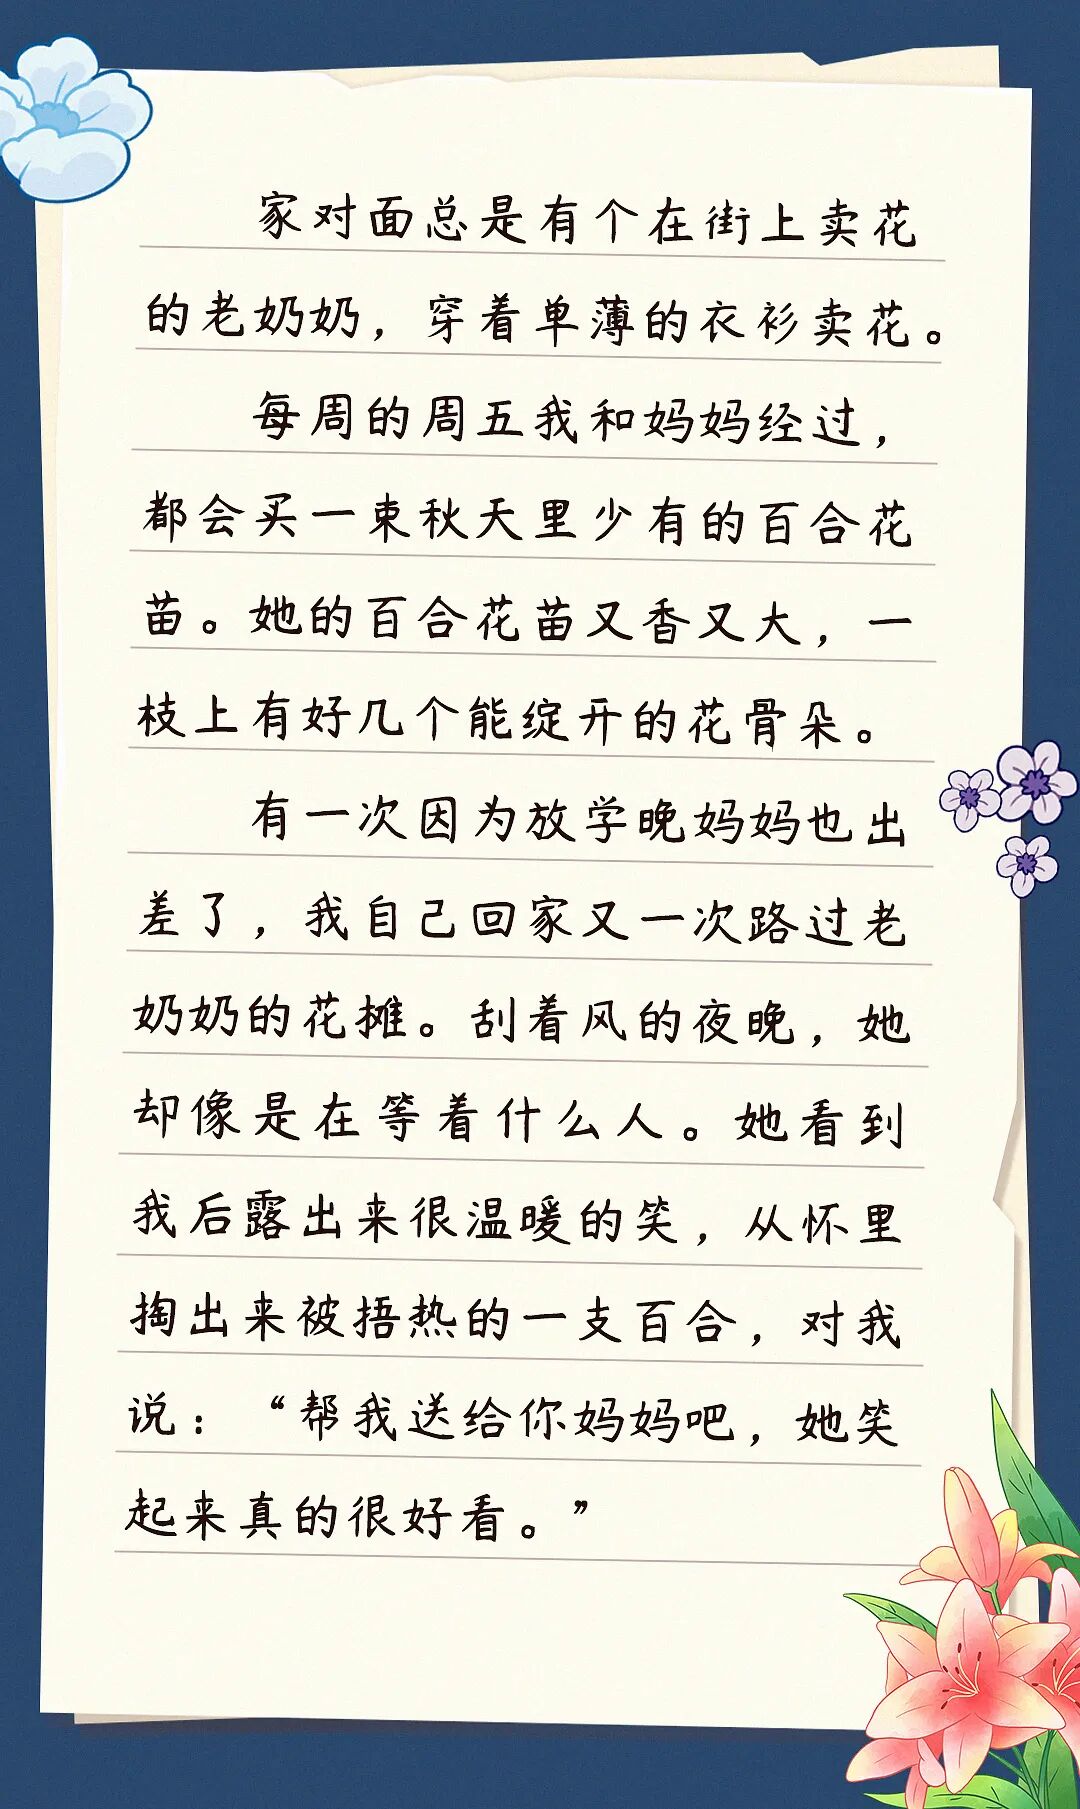 家对面总是有个在街上卖花
的老奶奶，穿着单薄的衣衫卖花。
每周的周五我和妈妈经过，
都会买一束秋天里少有的百合花
苗。她的百合花苗又香又大，一
枝上有好几个能绽开的花骨朵。
有一次因为放学晚妈妈也出
差了，我自己回家又一次路过老
奶奶的花摊。刮着风的夜晚，她
却像是在等着什么人。她看到
我后露出来很温暖的笑，从怀里
掏出来被捂热的一支百合，对我
说：“帮我送给你妈妈吧，她笑
起来真的很好看。”